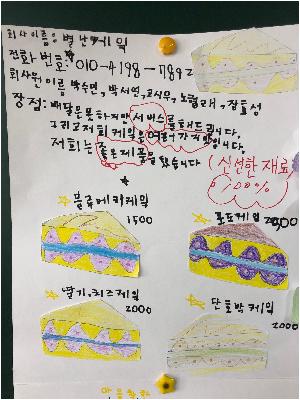 회사이름은: 별난케익
전화 번호: 010-4198-7892
회사원 이름 박수연, 박서연, 고시우, 노릴래, 장효성
장점: 배달은 못하지만 서비스를 해드립니다.
그리고 저희 케익은 여러가지 맛입니다.
저희는 좋은재료를 씁니다
신선한 재료
100%
블루베리케익
1500
포도케익
2500
딸기,치즈케익
2000
단호박케익
2000